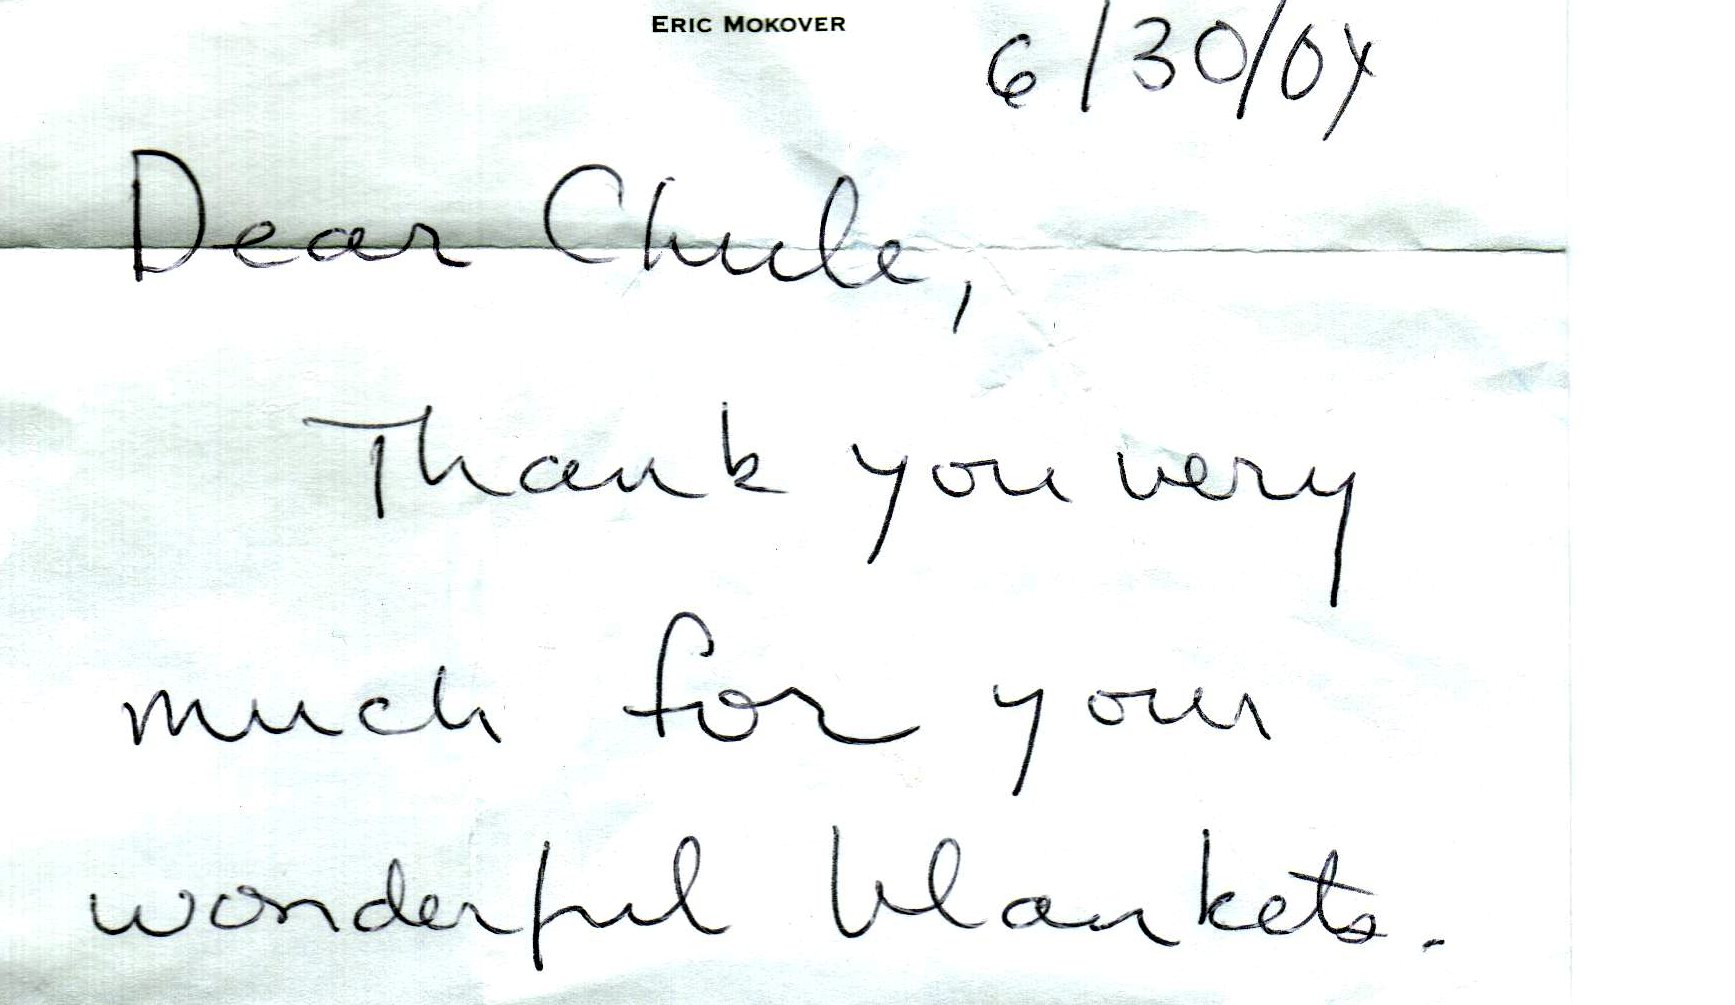 ERIC MOKOVER
6/30/04
Dear Chule,
Thank you very
much for your
wonderful blankets.